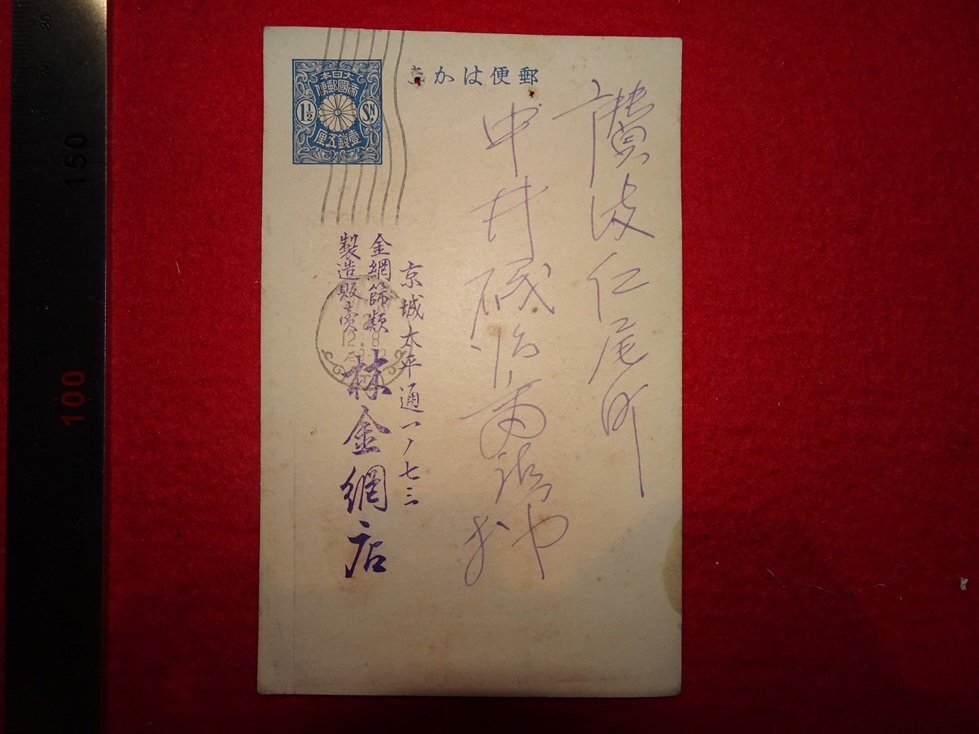 郵便はかき
大日本
帝國郵便
1½ SN
壹錢五厘
讃岐仁尾町
中井磯治商店
京城太平通一ノ七三
金網篩類
製造販賣
林金網店
150
100
50